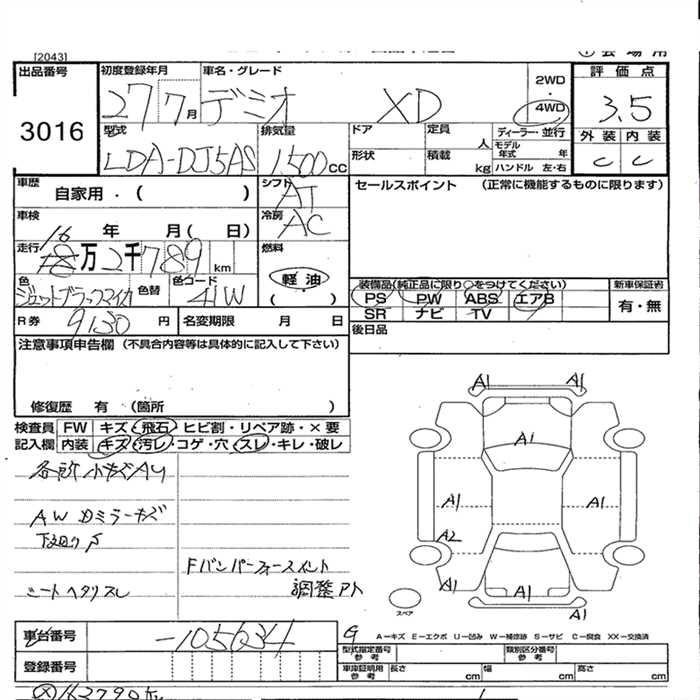 [2043]
出品番号
3016
初度登録年月
27 7月
車名・グレード
デミオ XD
2WD
4WD
評価点
3.5
外装 内装
C C
型式
LDA-DJ5AS
排気量
1500 CC
ドア
定員
人
形状
積載
kg
ディーラー・並行
モデル年式 年
ハンドル 左・右
車歴
自家用・( )
シフト
AT
セールスポイント (正常に機能するものに限ります)
車検
16年 月( 日)
冷房
AC
走行
8万2千789 km
燃料
軽油
( )
色
ジェットブラックマイカ
色替
色コード
41W
装備品(純正品に限り○をつけてください)
新車保証書
PS PW ABS エアB
SR ナビ TV
有・無
R券
9130円
名変期限 月 日
後日品
注意事項申告欄 (不具合内容等は具体的に記入して下さい)
修復歴 有 (箇所 )
検査員 FW キズ・飛石・ヒビ割・リペア跡・×要
記入欄 内装 キズ・汚レ・コゲ・穴・スレ・キレ・破レ
各所小キズAU
AW Dミラーキズ
下廻りサ
Fバンパーフォースメント
調整アト
シートヘタリスレ
A1 A1
A1
A1 A1
A2
A1 A1
A1
スペア
車台番号
-105634
G
A-キズ E-エクボ U-凹み W-補修跡 S-サビ C-腐食 XX-交換済
型式指定番号 参考
類別区分番号 参考
登録番号
車庫証明用 参考
長さ cm
幅 cm
高さ cm